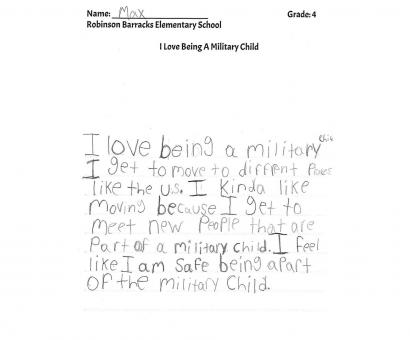 Name: Max Grade: 4
Robinson Barracks Elementary School
I Love Being A Military Child
I love being a military
I get to move to diffrent
like the U.S. I kinda like
moving because I get to
meet new people that are
Part of a military child. I feel
like I am safe being apart
of the military Child.